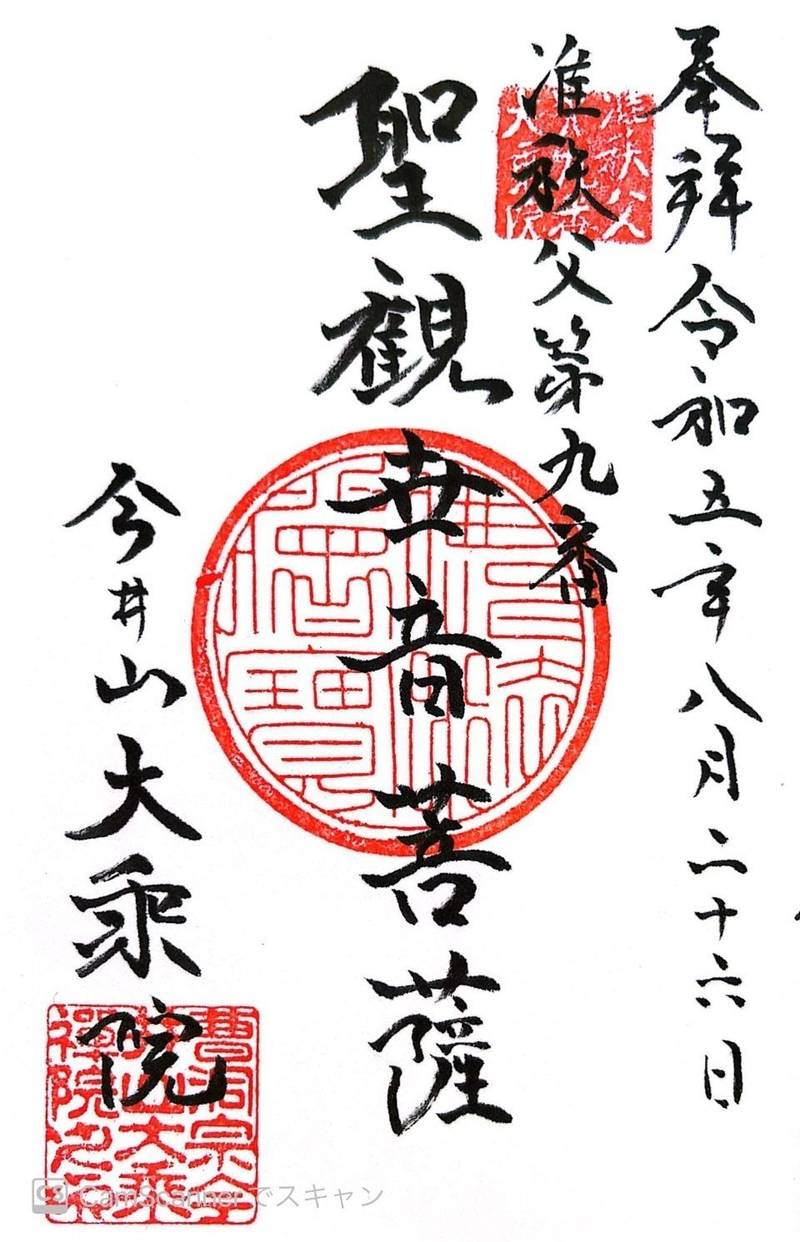 奉拝 令和五年八月二十六日
准秩父第九番
聖観世音菩薩
今井山大乘院
佛法僧寳
曹洞宗今
井山大乘
禪院之印
CamScannerでスキャン